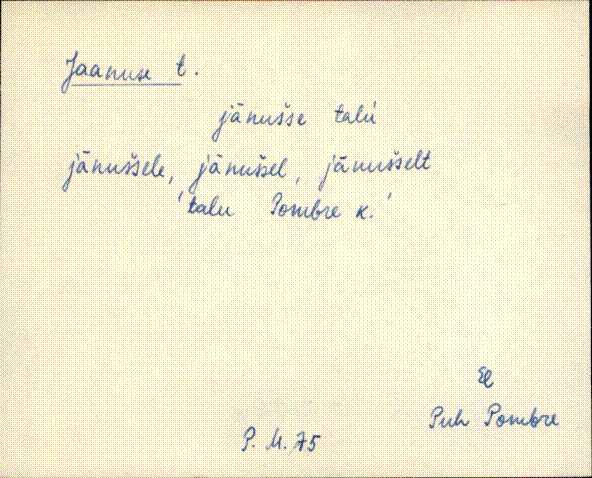 Jaanuse t.
jānušse talú
jānuššele, jānuššel, jānuššelt
'talu Pombre k.'
El
Puh Pombre
P. M. 75